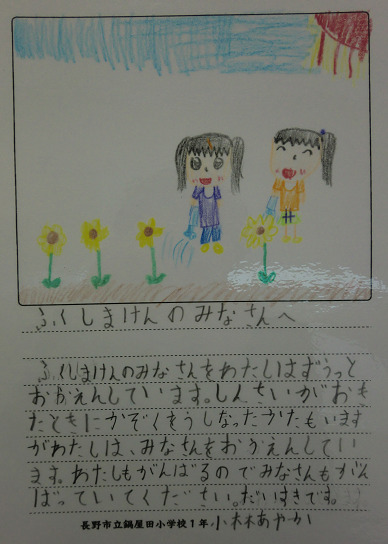 ふくしまけんのみなさんへ
ふくしまけんのみなさんをわたしはずうっと
おおえんしています。しんさいがおき
たときにかぞくをうしなったかたもいます
がわたしは、みなさんをおうえんしてい
ます。わたしもがんばるのでみなさんもがん
ばっていてください。だいすきです。
長野市立鍋屋田小学校1年 小林あやか